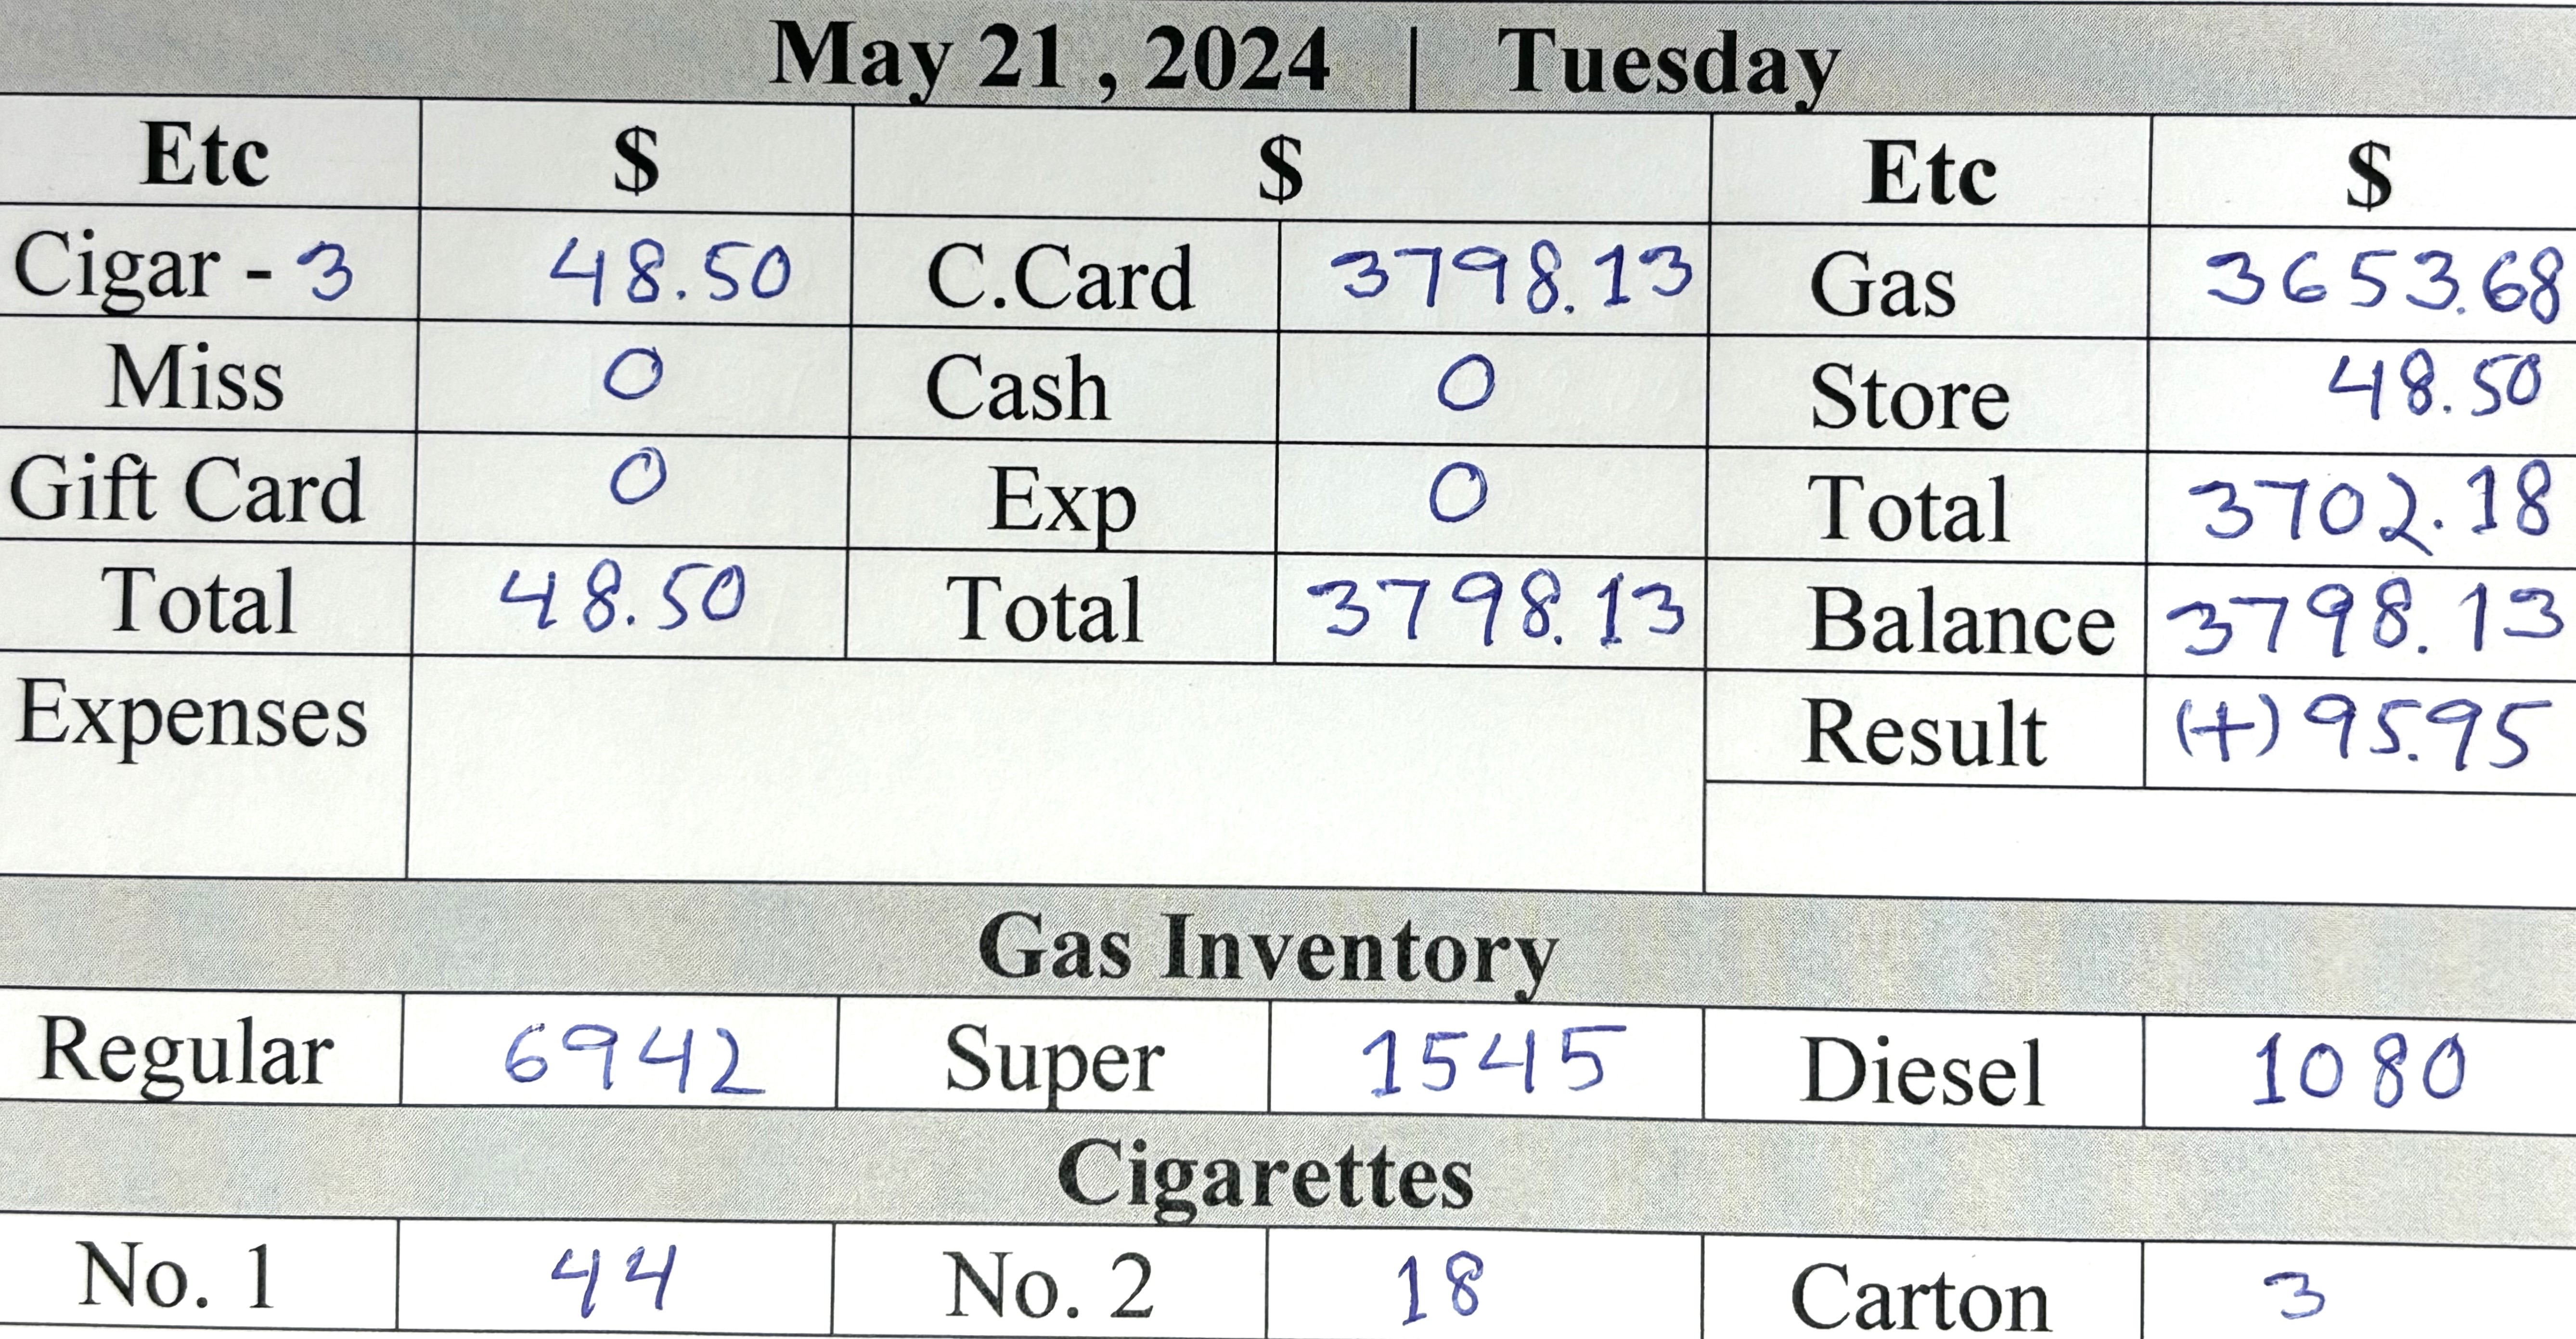 May 21 , 2024 | Tuesday
Etc $ $ Etc $
Cigar - 3 48.50 C.Card 3798.13 Gas 3653.68
Miss 0 Cash 0 Store 48.50
Gift Card 0 Exp 0 Total 3702.18
Total 48.50 Total 3798.13 Balance 3798.13
Expenses Result (+) 95.95
Gas Inventory
Regular 6942 Super 1545 Diesel 1080
Cigarettes
No. 1 44 No. 2 18 Carton 3